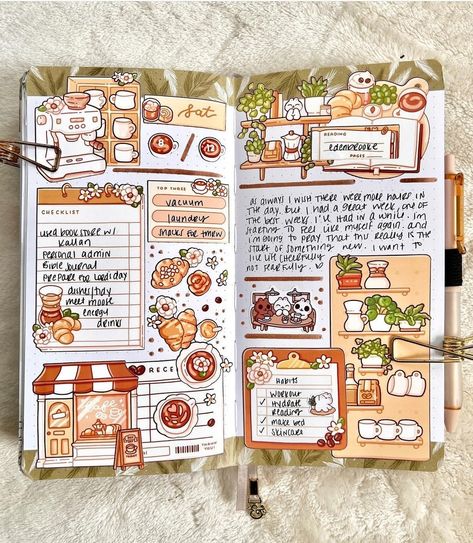 Sat
CHECKLIST
used bookstore w/
personal admin
Bible Journal
prepare for kodi day
dishes/tidy
meet moose
energy
drinks
TOP THREE
vacuum
laundry
snacks for tmrw
READING
edenbrooke
PAGES
as always I wish there were more hours in
the day. but I had a great week, one of
the best weeks I've had in a while. I'm
starting to feel like myself again. and
I'm going to pray that this really is the
start of something new. I want to
live life cheerfully
not fearfully.
Habits
workout
✓ hydrate
reading
✓ make bed
✓ skincare